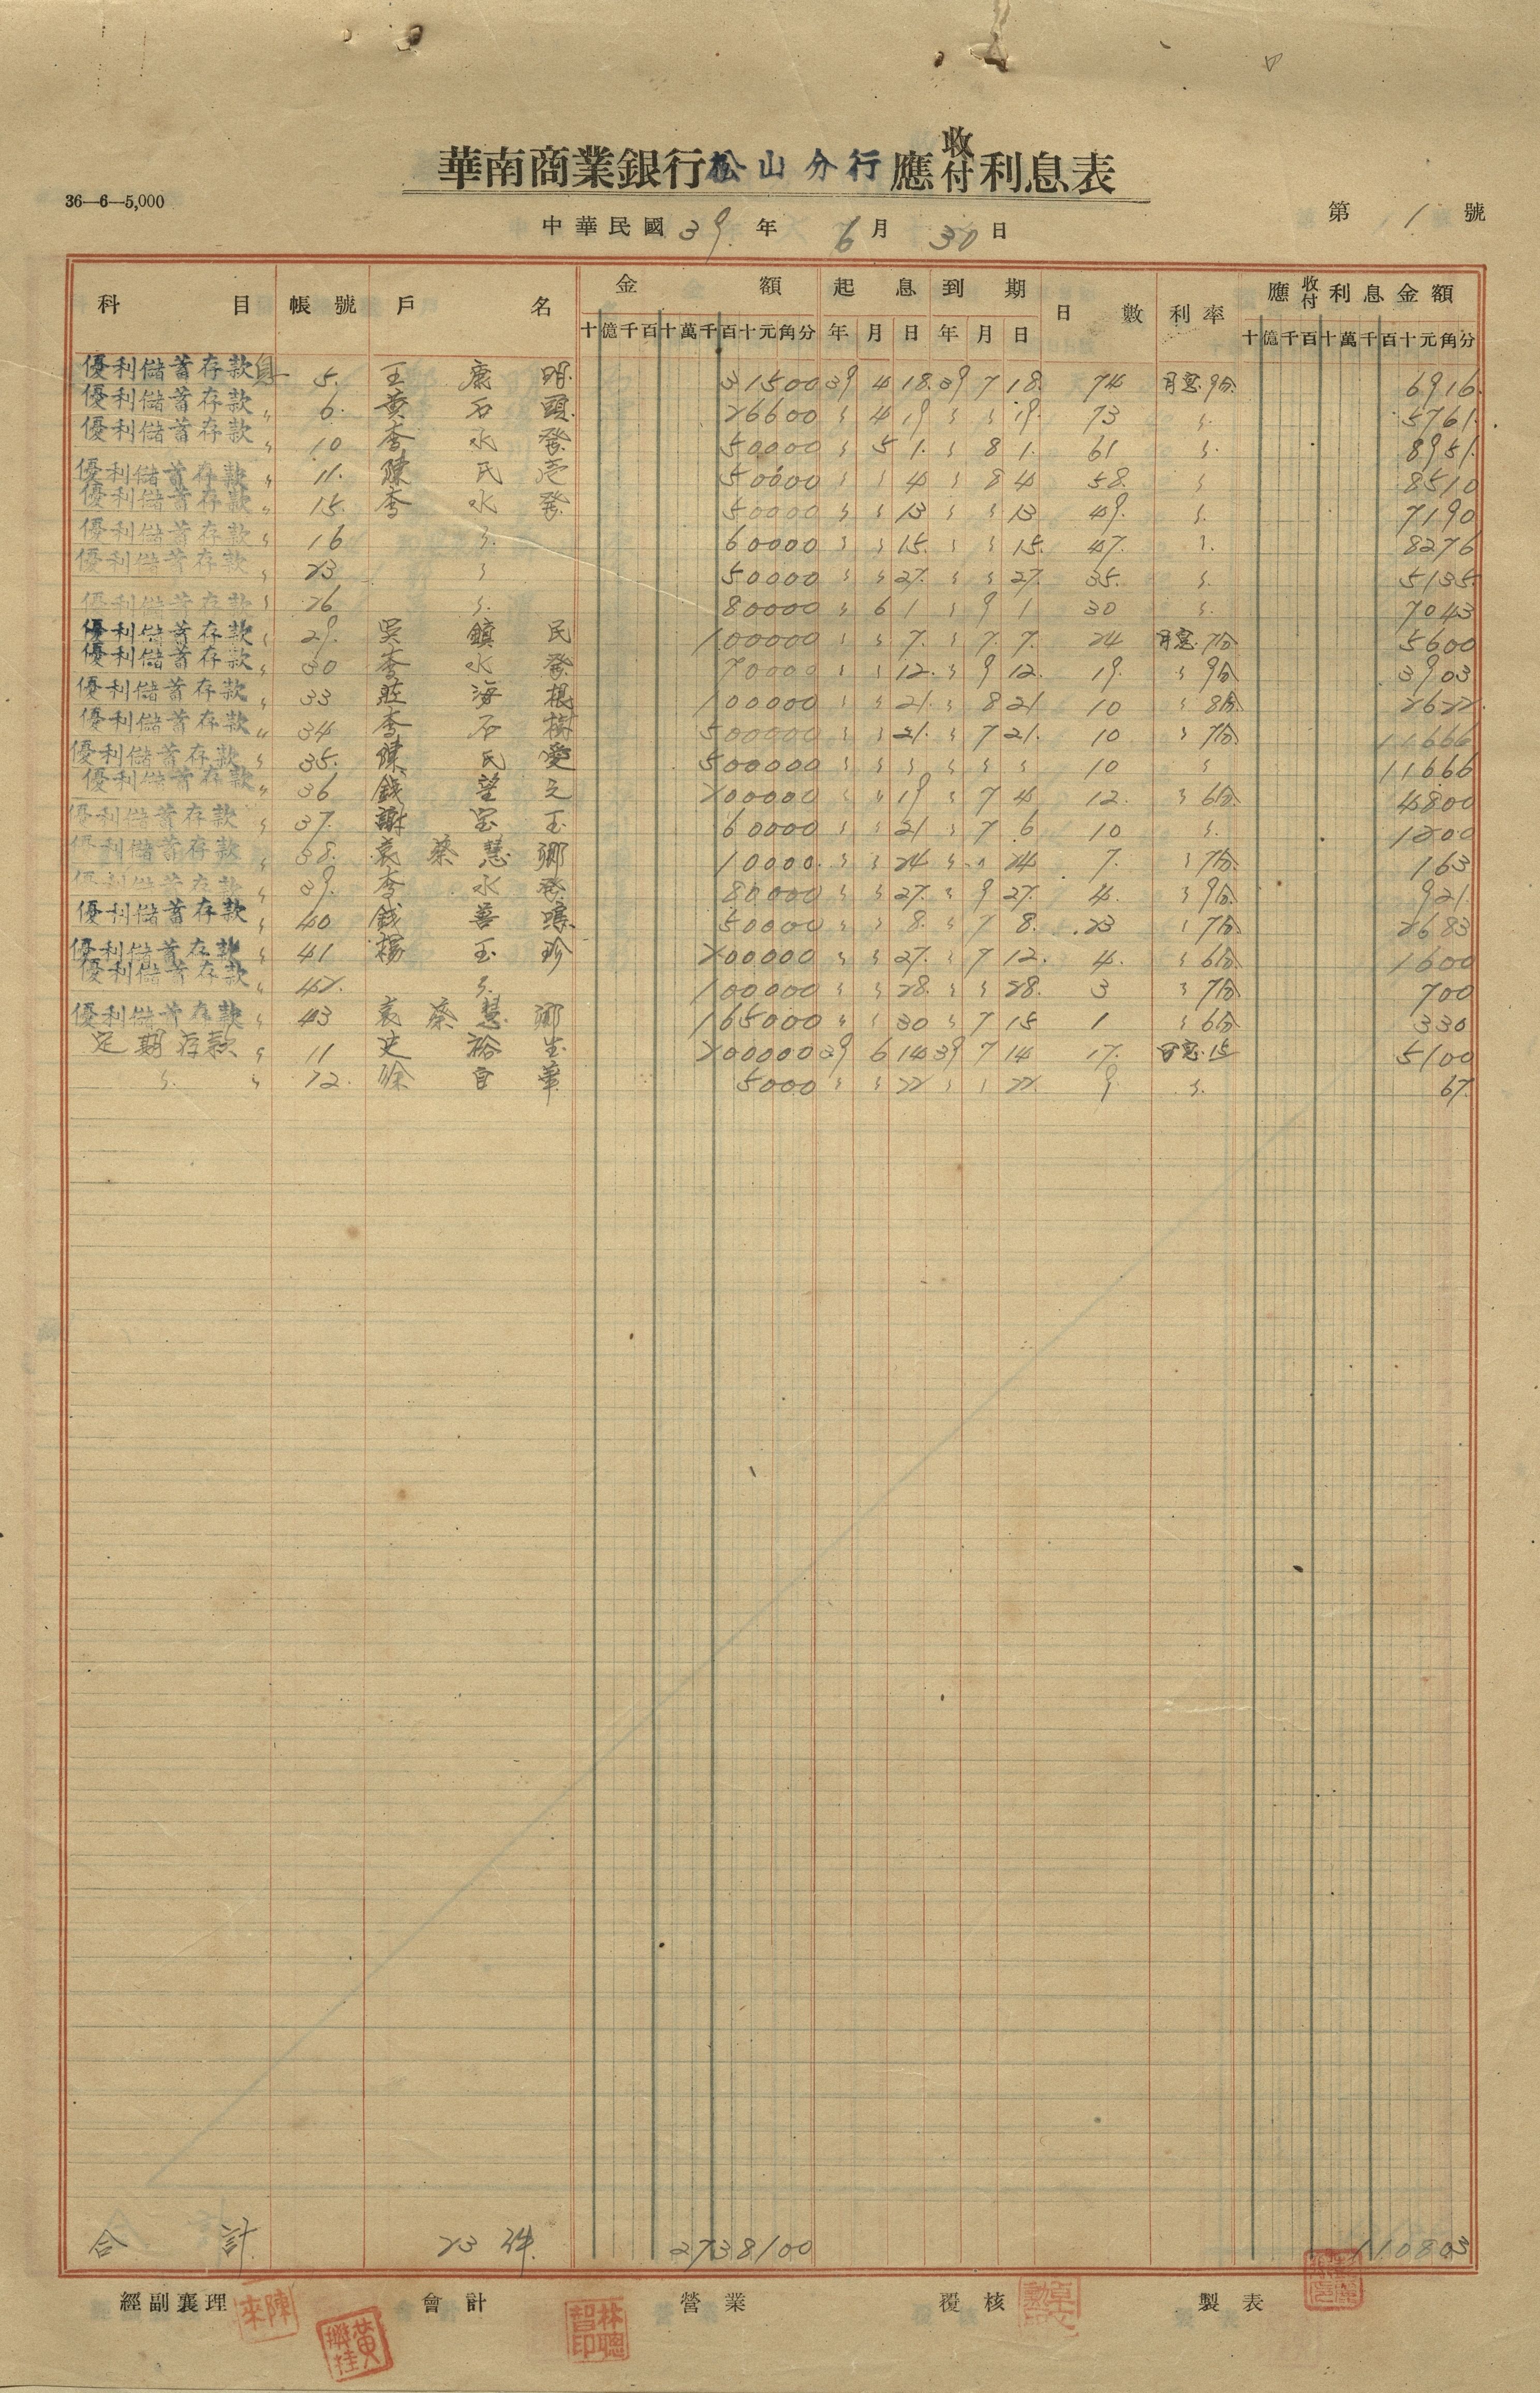 華南商業銀行松山分行應收付利息表
36—6—5,000
中華民國39年6月30日
第1號
科目 帳號 戶名 金額 起息 到期 日數 利率 應收付利息金額
十億千百十萬千百十元角分 年月日 年月日 十億千百十萬千百十元角分
優利儲蓄存款 5. 王康明 31500 39 4 18. 39 7 18. 74 月息.9分 6916
優利儲蓄存款 〃 6. 黄石頭 26600 〃 4 19 〃 〃 19. 73 〃 5761
優利儲蓄存款 〃 10 李水發 50000 〃 5 1. 〃 8 1. 61 〃 8951
優利儲蓄存款 〃 11. 陳氏 50000 〃 〃 4 〃 8 4 58. 〃 8510
優利儲蓄存款 〃 15. 李水發 50000 〃 〃 13 〃 〃 13 49. 〃 7190
優利儲蓄存款 〃 16 〃 60000 〃 〃 15. 〃 〃 15. 47. 〃 8276
優利儲蓄存款 〃 23 〃 50000 〃 〃 27. 〃 〃 27. 35. 〃 5135
優利儲蓄存款 〃 26 〃 80000 〃 6 1 〃 9 1 30 〃 7043
優利儲蓄存款 〃 29. 吳鎮民 100000 〃 〃 7. 〃 7. 7. 24 月息.7分 5600
優利儲蓄存款 〃 30 李水發 70000 〃 〃 12. 〃 9 12. 19. 〃 9分 3903
優利儲蓄存款 〃 33 莊海根 100000 〃 〃 21. 〃 8 21 10 〃 8分 2622
優利儲蓄存款 〃 34 李石樹 500000 〃 〃 21. 〃 7 21. 10 〃 7分 11666
優利儲蓄存款 〃 35. 陳氏愛 500000 〃 〃 〃 〃 〃 〃 10 〃 11666
優利儲蓄存款 〃 36 錢望之 200000 〃 〃 19 〃 7 4 12. 〃 6分 4800
優利儲蓄存款 〃 37. 謝宝玉 60000 〃 〃 21 〃 7 6 10 〃 1200
優利儲蓄存款 〃 38. 袁蔡慧卿 10000. 〃 〃 24 〃 〃 24 7. 〃 7分 163
優利儲蓄存款 〃 39. 李水發 80000 〃 〃 27. 〃 9 27. 4. 〃 9分 921
優利儲蓄存款 〃 40 錢善 50000 〃 〃 8. 〃 7 8. 23 〃 7分 2683
優利儲蓄存款 〃 41 楊玉珍 200000 〃 〃 27. 〃 7 12. 4. 〃 6分 1600
優利儲蓄存款 〃 42. 〃 100000 〃 〃 28. 〃 〃 28. 3 〃 7分 700
優利儲蓄存款 〃 43 袁蔡慧卿 165000 〃 〃 30 〃 7 15 1 〃 6分 330
定期存款 〃 11 史裕生 200000 39 6 14 39 7 14 17. 月息.15 5100
〃 〃 12. 徐自華 5000 〃 〃 22 〃 〃 22. 9 〃 67.
合計 23件 2738100 110803
經副襄理 會計 營業 覆核 製表
陳來
黃聯桂
林聰智印